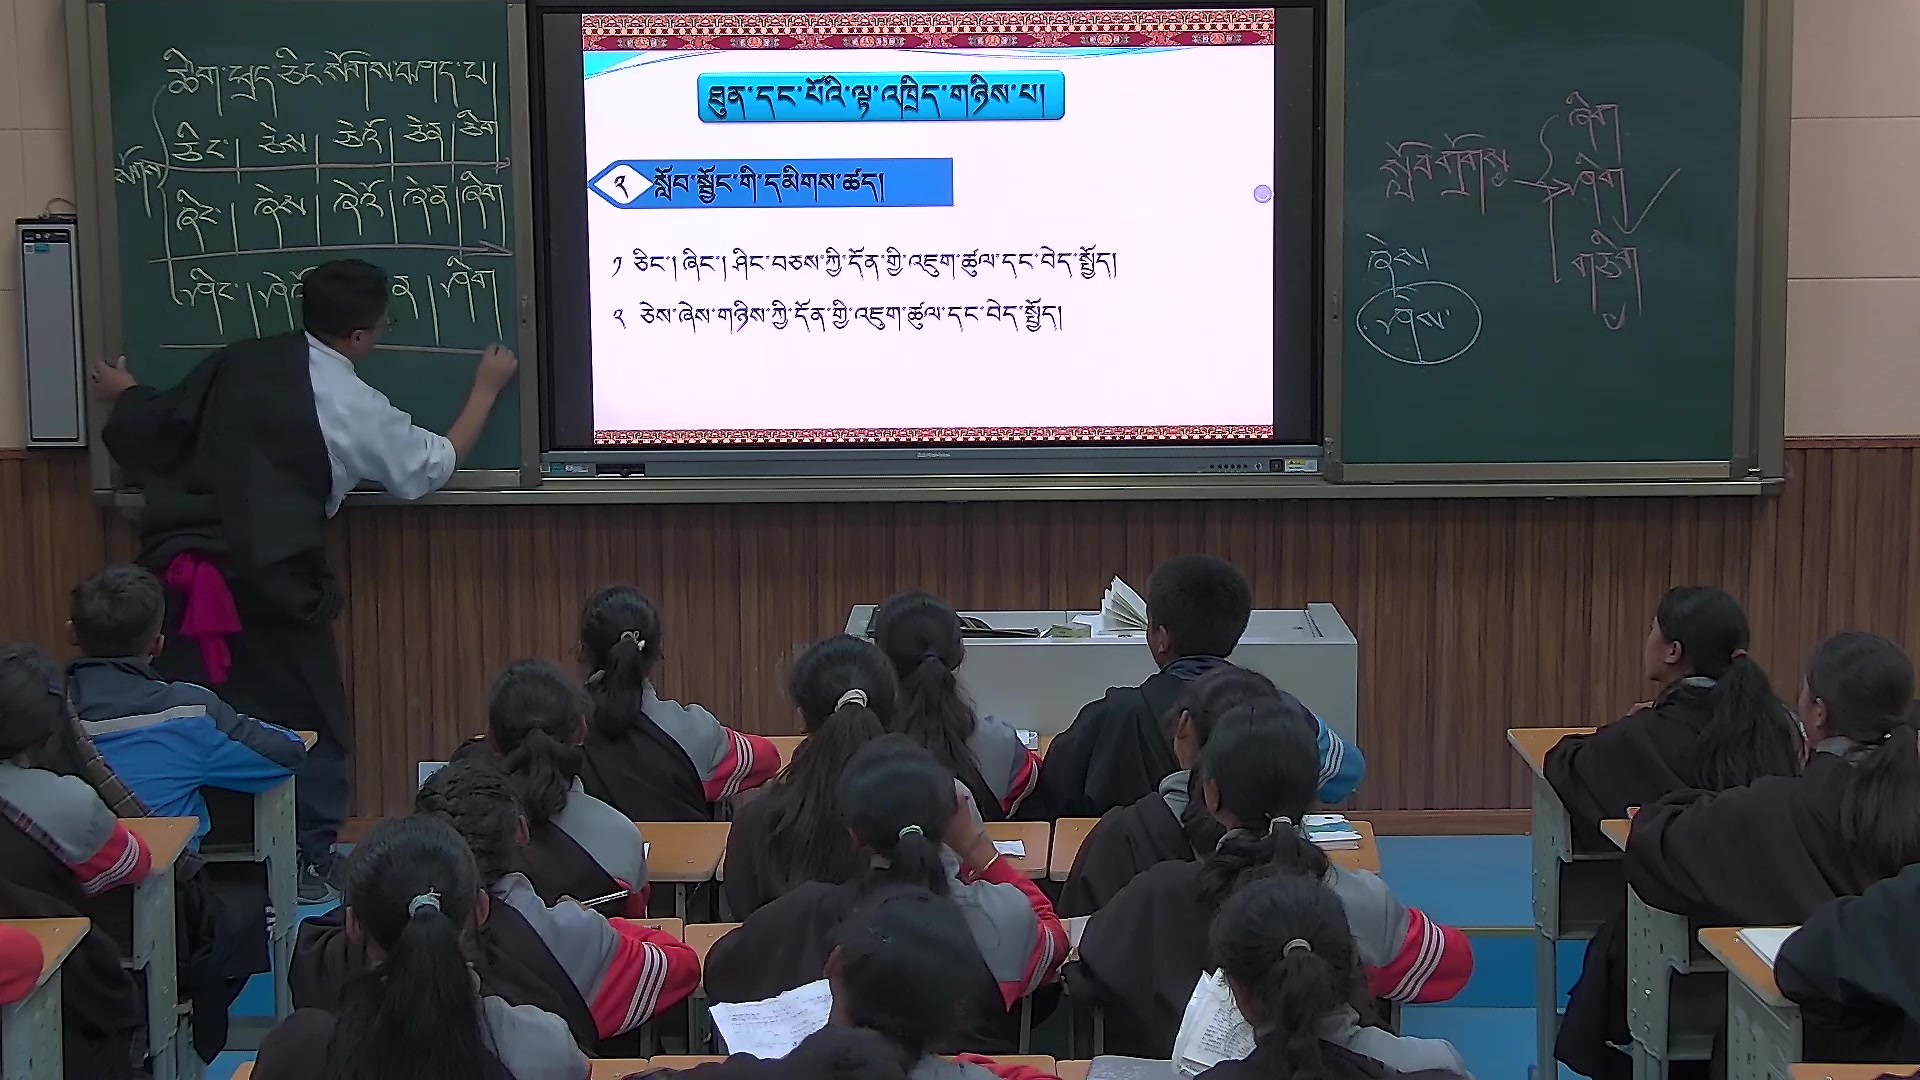 ཚིག་ཕྲད་ཅིང་སོགས་བཤད་པ།
སོགས
ཅིང་། ཅེས ཅེའོ ཅེ་ན ཅིག
ཞིང་ ཞེས ཞེའོ ཞེ་ན ཞིག
ཤིང་ ཤིག
ཐུན་དང་པོའི་ལྟ་འཁྲིད་གཉིས་པ།
༢ སློབ་སྦྱོང་གི་དམིགས་ཚད།
༡ ཅིང་། ཞིང་། ཤིང་བཅས་ཀྱི་དོན་གྱི་འཇུག་ཚུལ་དང་བེད་སྤྱོད།
༢ ཅེས་ཞེས་གཉིས་ཀྱི་དོན་གྱི་འཇུག་ཚུལ་དང་བེད་སྤྱོད།
ཞིག
སློབ་གྲོགས ཤིག
གཅིག
ཞེས
ཤེས་